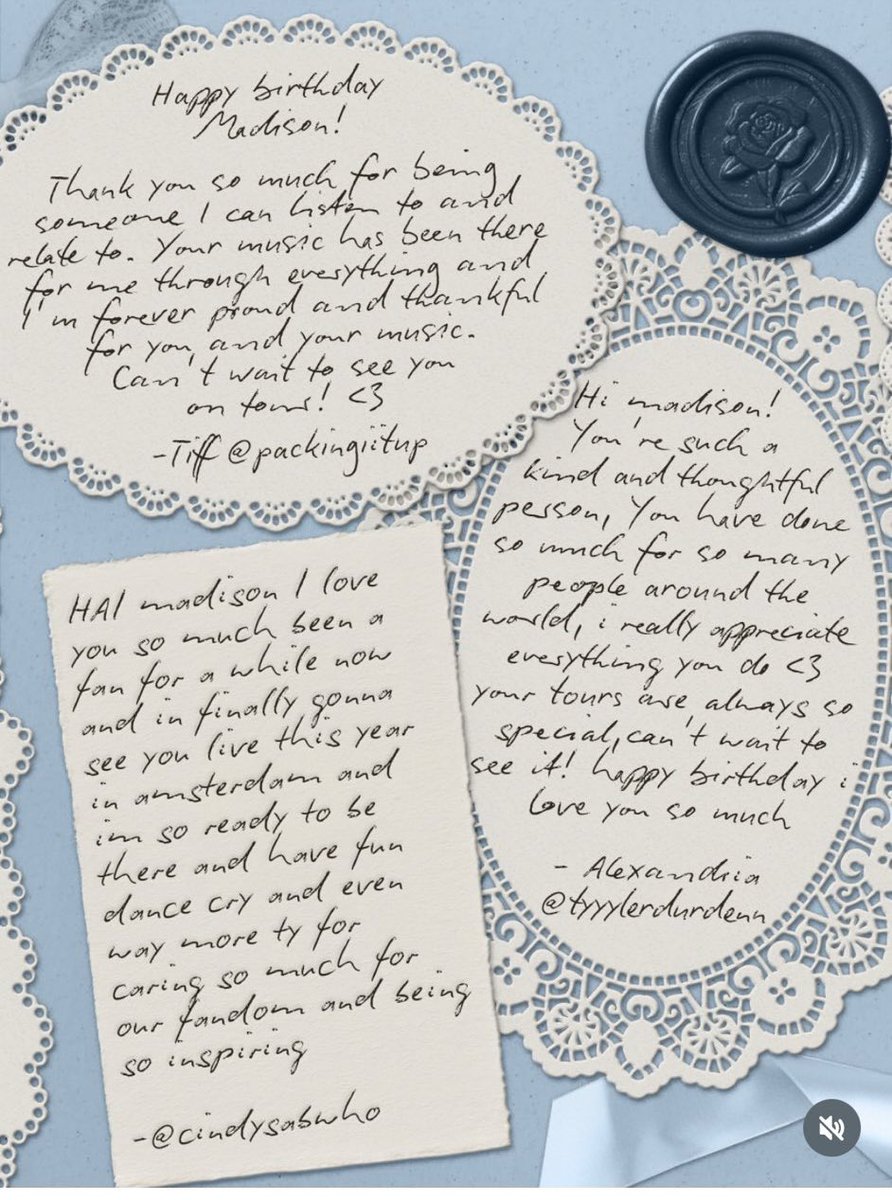 Happy birthday
Madison!
Thank you so much for being
someone I can listen to and
relate to. Your music has been there
for me through everything and
I'm forever proud and thankful
for you and your music.
Can't wait to see you
on tour! <3
-Tiff @packingiitup
Hi madison!
You're such a
kind and thoughtful
person, You have done
so much for so many
people around the
world, i really appreciate
everything you do <3
your tours are always so
special, can't wait to
see it! happy birthday i
love you so much
- Alexandria
@tyyylerdurdenn
HAI madison I love
you so much been a
fan for a while now
and in finally gonna
see you live this year
in amsterdam and
im so ready to be
there and have fun
dance cry and even
way more ty for
caring so much for
our fandom and being
so inspiring
-@cindysabwho